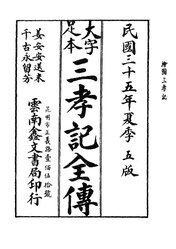 繪圖三孝記
民國三十五年夏季五版
大字足本
三孝記全傳
昆明市正義路壹佰伍拾號
雲南鑫文書局印行
姜安安送米
千古永留芳